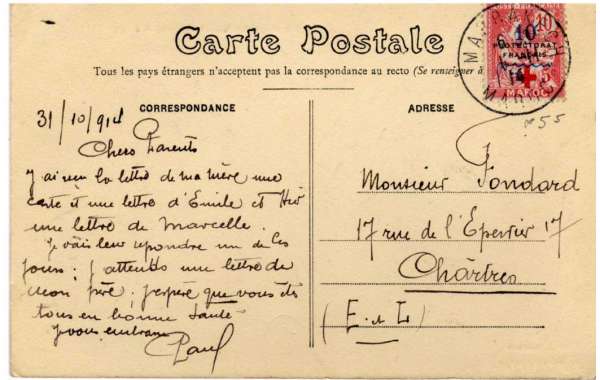 Carte Postale
Tous les pays étrangers n'acceptent pas la correspondance au recto (Se renseigner à
CORRESPONDANCE
31/10/914
Chers Parents
J'ai reçu la lettre de ma mère une
carte et une lettre d'Emile et Hier
une lettre de Marcelle.
Je vais leur repondre un de ces
jours; j'attends une lettre de
mon père; j'espère que vous êtes
tous en bonne santé
Je vous embrasse
Paul
ADRESSE
Monsieur Fondard
17 rue de l'Epervier 17
Chârtres
(E. et L)
10
10
PROTECTORAT
FRANÇAIS
5
MAROC
MARRAKECH
MAROC